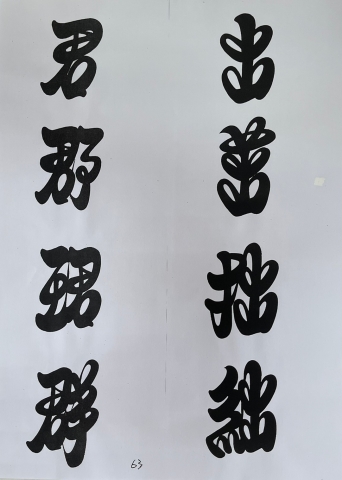 出茁拙絀
君郡群
63